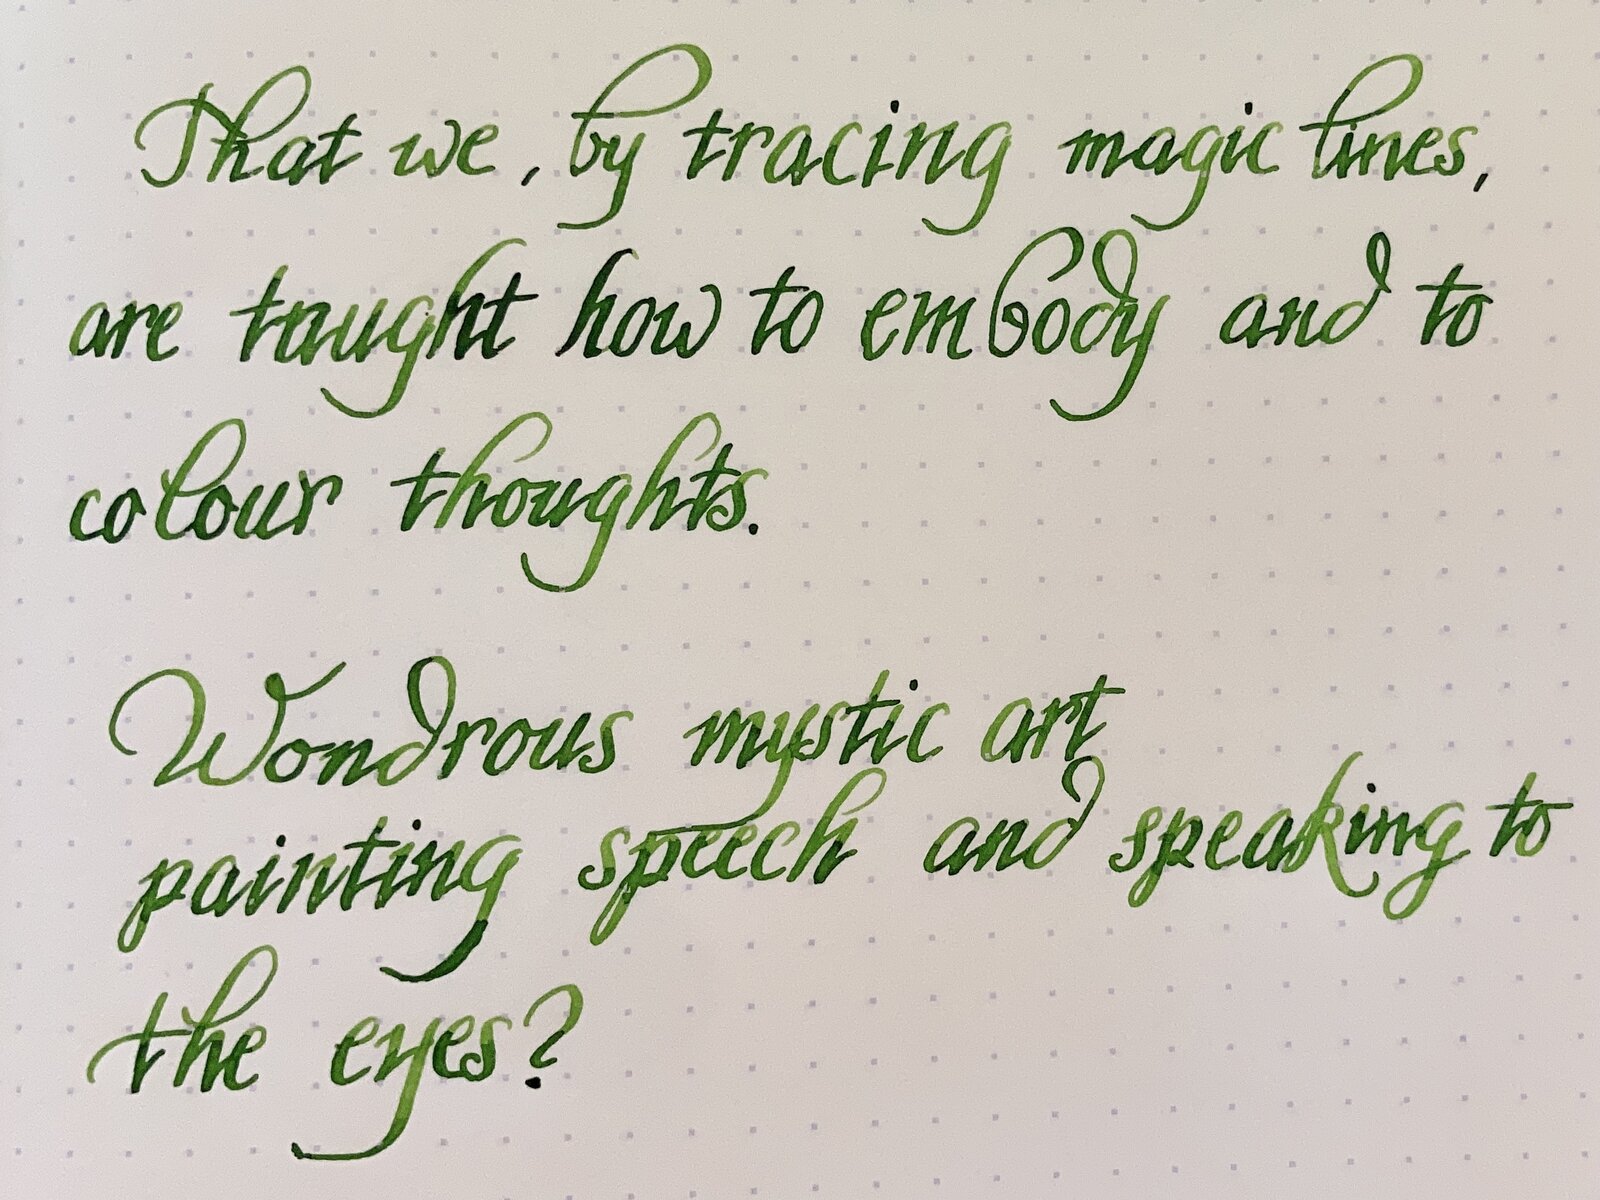 That we, by tracing magic lines,
are taught how to embody and to
colour thoughts.
Wondrous mystic art
painting speech and speaking to
the eyes?